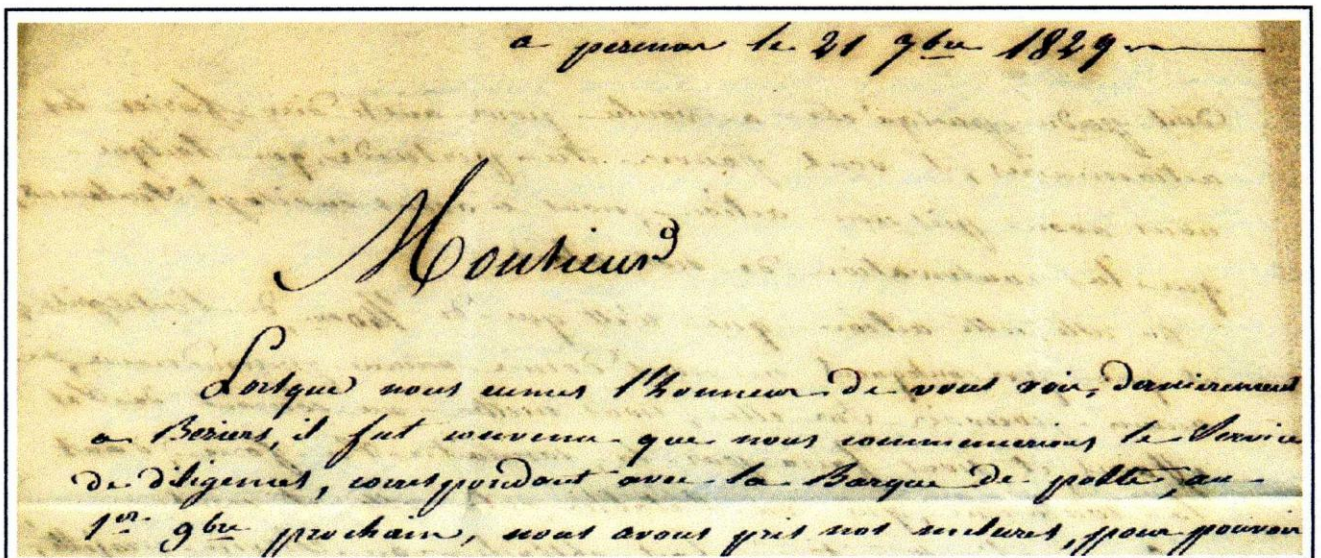 a pezenas le 21 7bre 1829
Monsieur
Lorsque nous eumes l'honneur de vous voir, dernierement
a Beziers, il fut convenu que nous commencerions le Service
de diligences, correspondant avec la Barque de poste, au
1er 9bre prochain, nous avons pris nos mesures, pour pouvoir